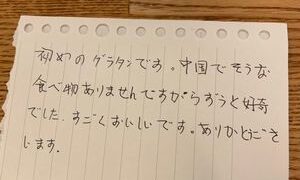 初めのグラタンです。中国でそうな
食べ物ありませんですがらずうと好奇
でした、すごくおいしいです。ありかとごさ
います。